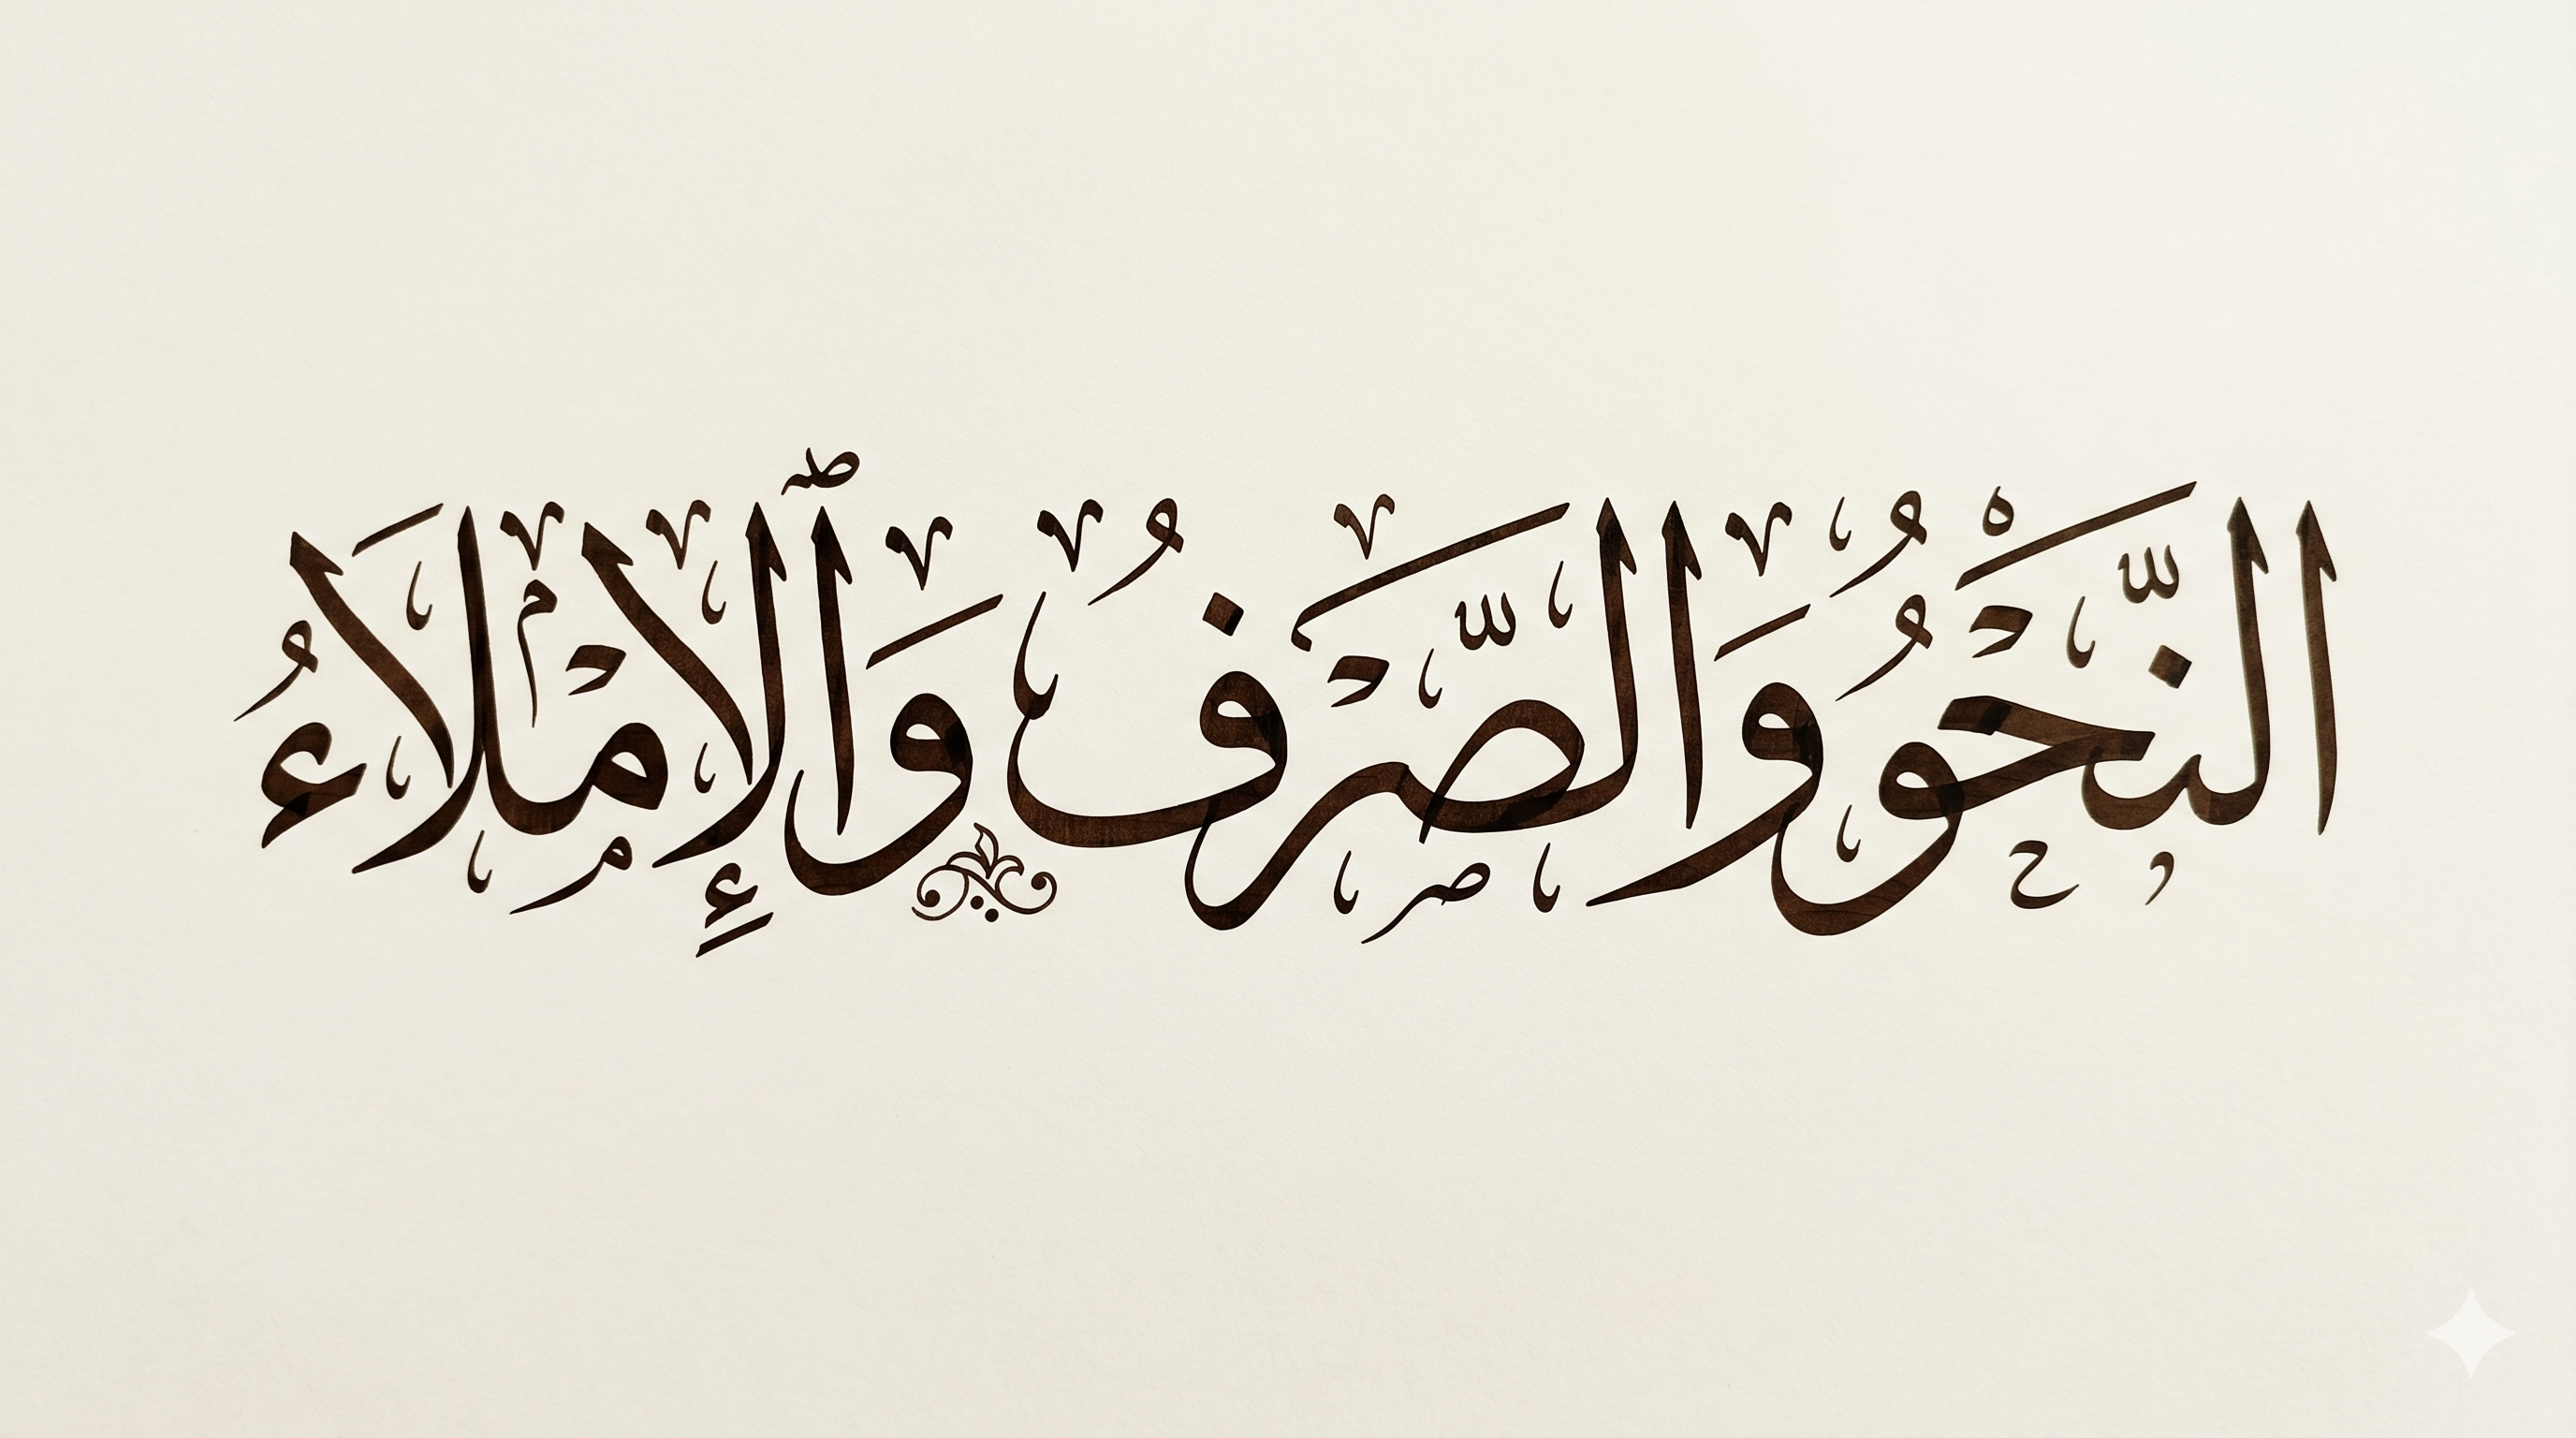 النَّحْوُ وَالصَّرْفُ وَٱلْإِمْلَاءُ